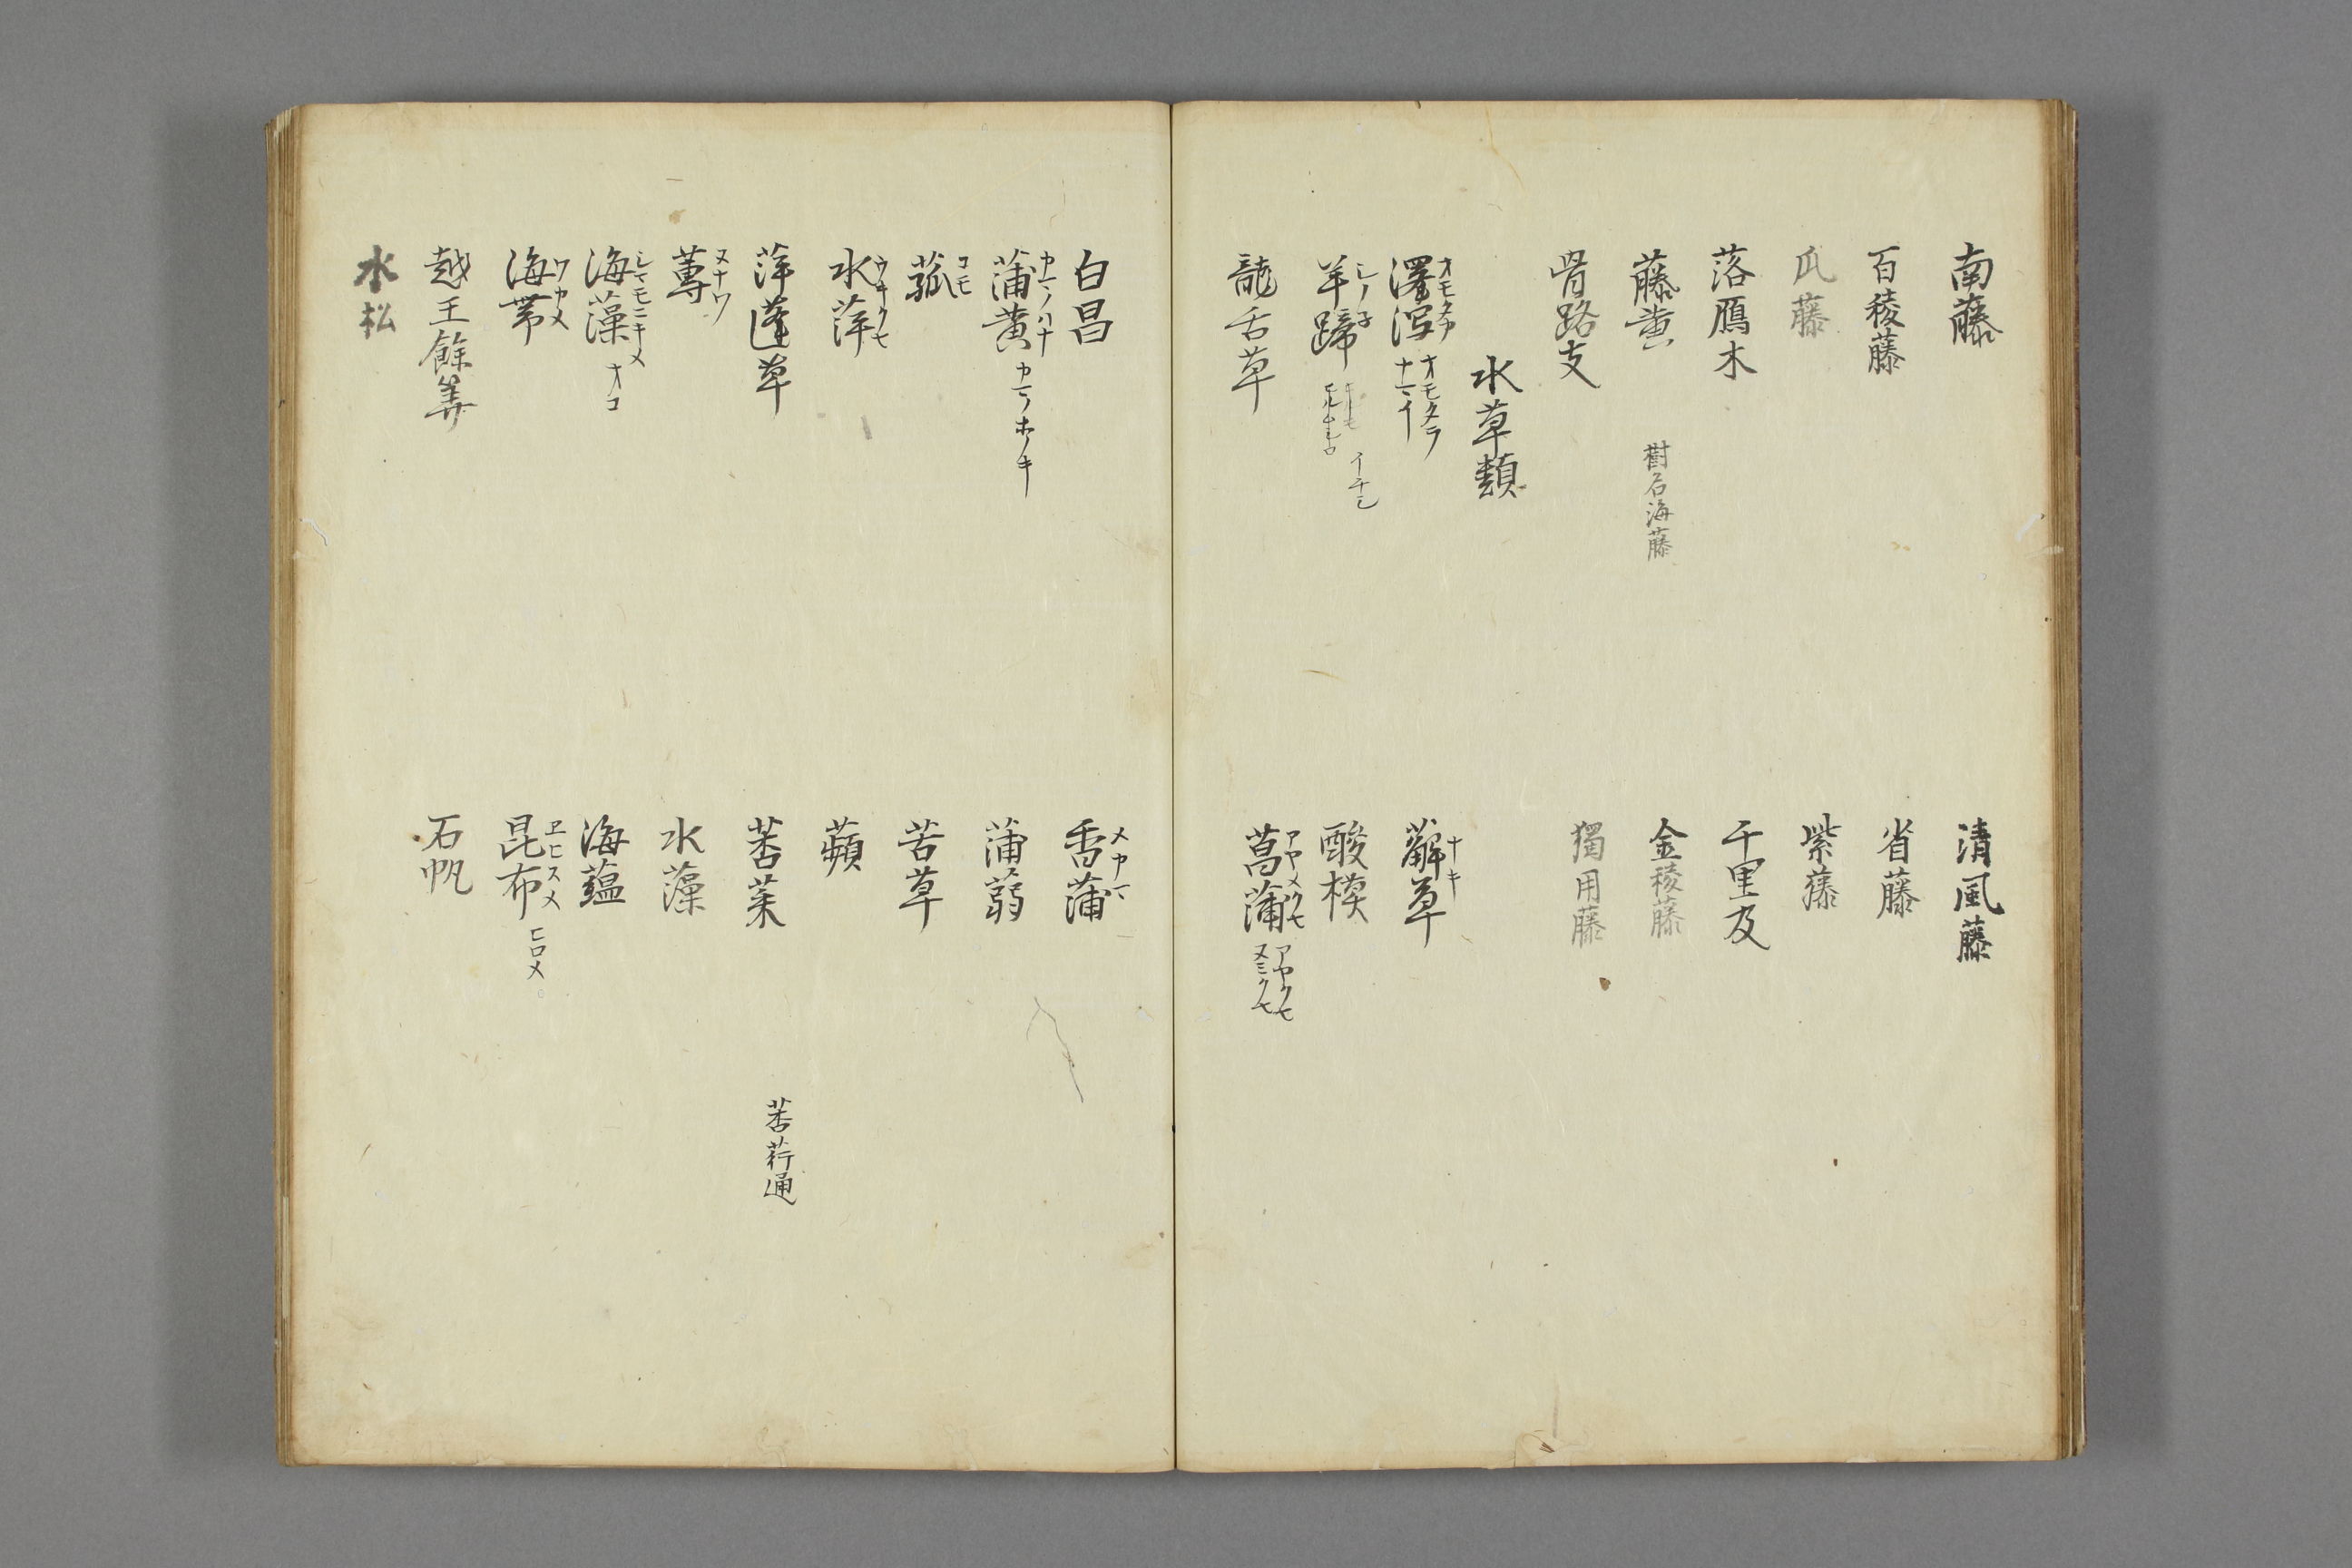 南藤
清風藤
百稜藤
省藤
瓜藤
紫藤
落鴈木
千里及
藤黄
樹石海藤
金稜藤
骨路支
獨用藤
水草類
澤泻 オモタカ オモタラ ナマイ
薢草 ナキ
羊蹄 シノ子 イチシ
酸模
龍舌草
菖蒲 アヤメクモ アヤクモ ヌミクモ
白昌
香蒲 メカマ
蒲黄 カマノハナ カマノホノキ
蒲蒻
菰 コモ
苦草
水萍 ウキクモ
蘋
萍蓬草
莕菜
莕荇通
蓴 ヌナワ
水藻
海藻 シマモニキメ オコ
海蘊
海帯 ワカメ
昆布 ヱヒスメ ヒロメ
越王餘筭
石帆
水松